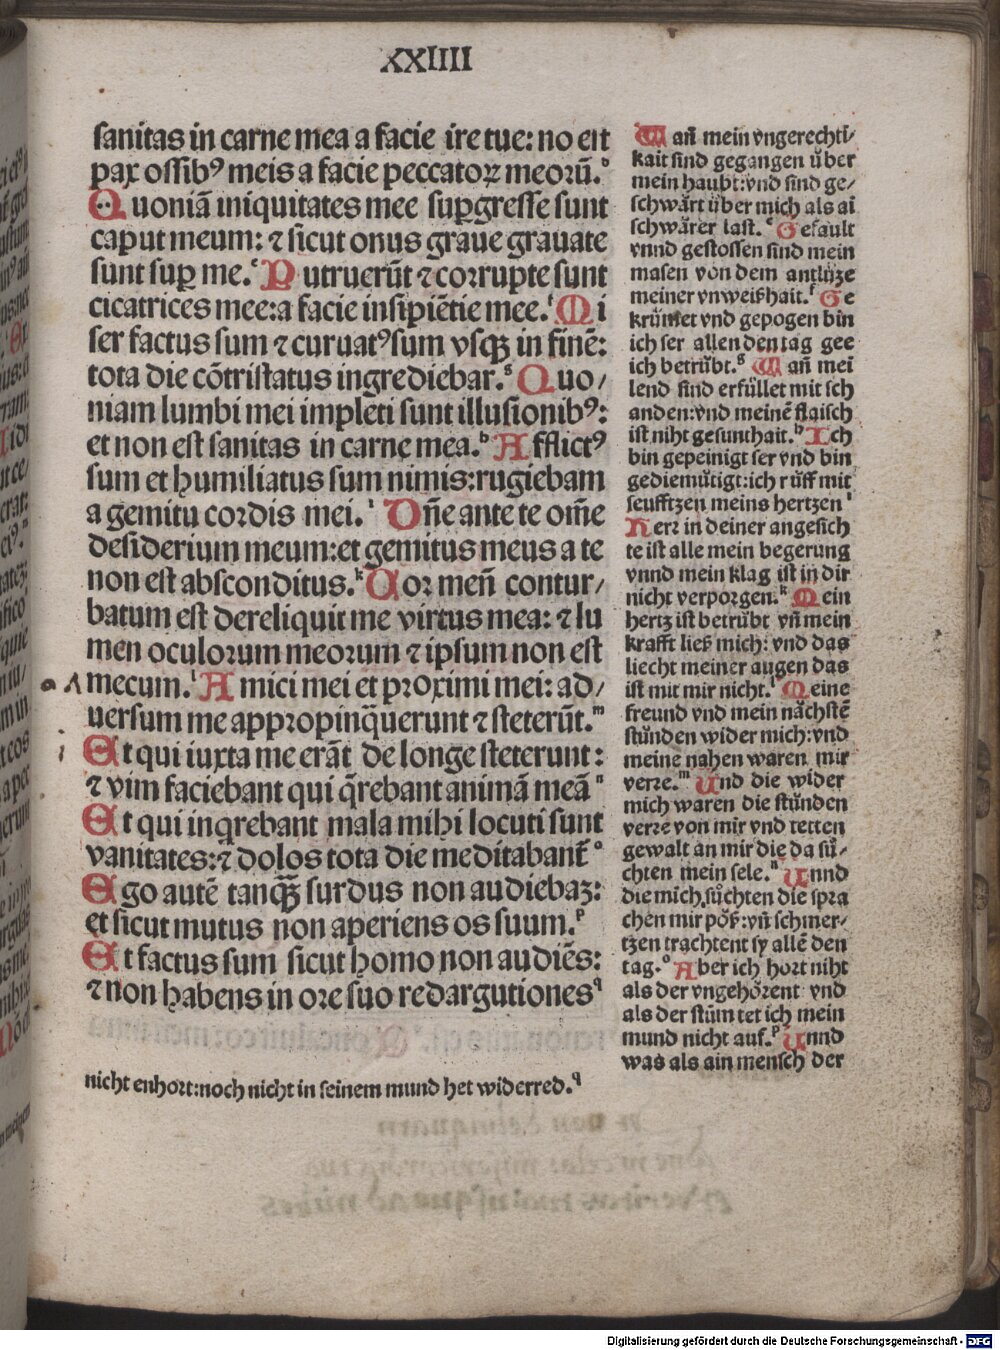 XXIIII
sanitas in carne mea a facie ire tue: nō est
pax ossibꝰ meis a facie peccatoꝝ meoꝛū.
Quoniā iniquitates mee suꝑgresse sunt
caput meum: ⁊ sicut onus graue grauate
sunt suꝑ me.ᵉ Putruerūt ⁊ corrupte sunt
cicatrices mee:a facie insipiētie mee.ᶠ Mi
ser factus sum ⁊ curuatꝰ sum vsqꝫ in finē:
tota die cōtristatus ingrediebar.ᵍ Quo/
niam lumbi mei impleti sunt illusionibꝰ:
et non est sanitas in carne mea.ʰ Afflictꝰ
sum et humiliatus sum nimis:rugiebam
a gemitu cordis mei.ⁱ Dn̄e ante te om̄e
desiderium meum:et gemitus meus a te
non est absconditus.ᵏ Cor meū contur/
batum est dereliquit me virtus mea: ⁊ lu
men oculorum meorum ⁊ ipsum non est
mecum.ˡ Amici mei et proximi mei: ad/
uersum me appropinq̄uerunt ⁊ steterūt.ᵐ
Et qui iuxta me erāt de longe steterunt:
⁊ vim faciebant qui q̄rebant animā meāⁿ
Et qui inqrebant mala mihi locuti sunt
vanitates:⁊ dolos tota die meditabant̄ᵒ
Ego autē tanqꝫ surdus non audiebaꝫ:
et sicut mutus non aperiens os suum.ᵖ
Et factus sum sicut homo non audiēs:
⁊ non habens in ore suo redargutiones
Wañ mein vngerechti-
kait sind gegangen ůber
mein haubt:vnd sind ge/
schwärt ůber mich als ai
schwärer last.ᵉ Gefault
vnnd gestossen sind mein
masen von dem antlüze
meiner vnweißhait.ᶠ Ge
krümet vnd gepogen bin
ich ser allen den tag gee
ich betrübt.ᵍ Wañ mei
lend sind erfüllet mit sch
anden:vnd meinē flaisch
ist niht gesunthait.ʰ Ich
bin gepeinigt ser vnd bin
gediemütigt:ich rüff mit
seufftzen meins hertzenⁱ
Herr in deiner angesich
te ist alle mein begerung
vnnd mein klag ist in dir
nicht verporgen.ᵏ Mein
hertz ist betrübt vñ mein
krafft ließ mich: vnd das
liecht meiner augen das
ist mit mir nicht.ˡ Meine
freund vnd mein nächstē
stůnden wider mich:vnd
meine nahen waren mir
verre.ᵐ Und die wider
mich waren die stůnden
verre von mir vnd tetten
gewalt an mir die da sů-
chten mein sele.ⁿ Unnd
die mich sůchten die spra
chen mir pöß:vñ schmer-
tzen trachtent sy allē den
tag.ᵒ Aber ich hort niht
als der vngehörent vnd
als der stům tet ich mein
mund nicht auf.ᵖ Unnd
was als ain mensch der
nicht enhort:noch nicht in seinem mund het widerred.
Digitalisierung gefördert durch die Deutsche Forschungsgemeinschaft - DFG